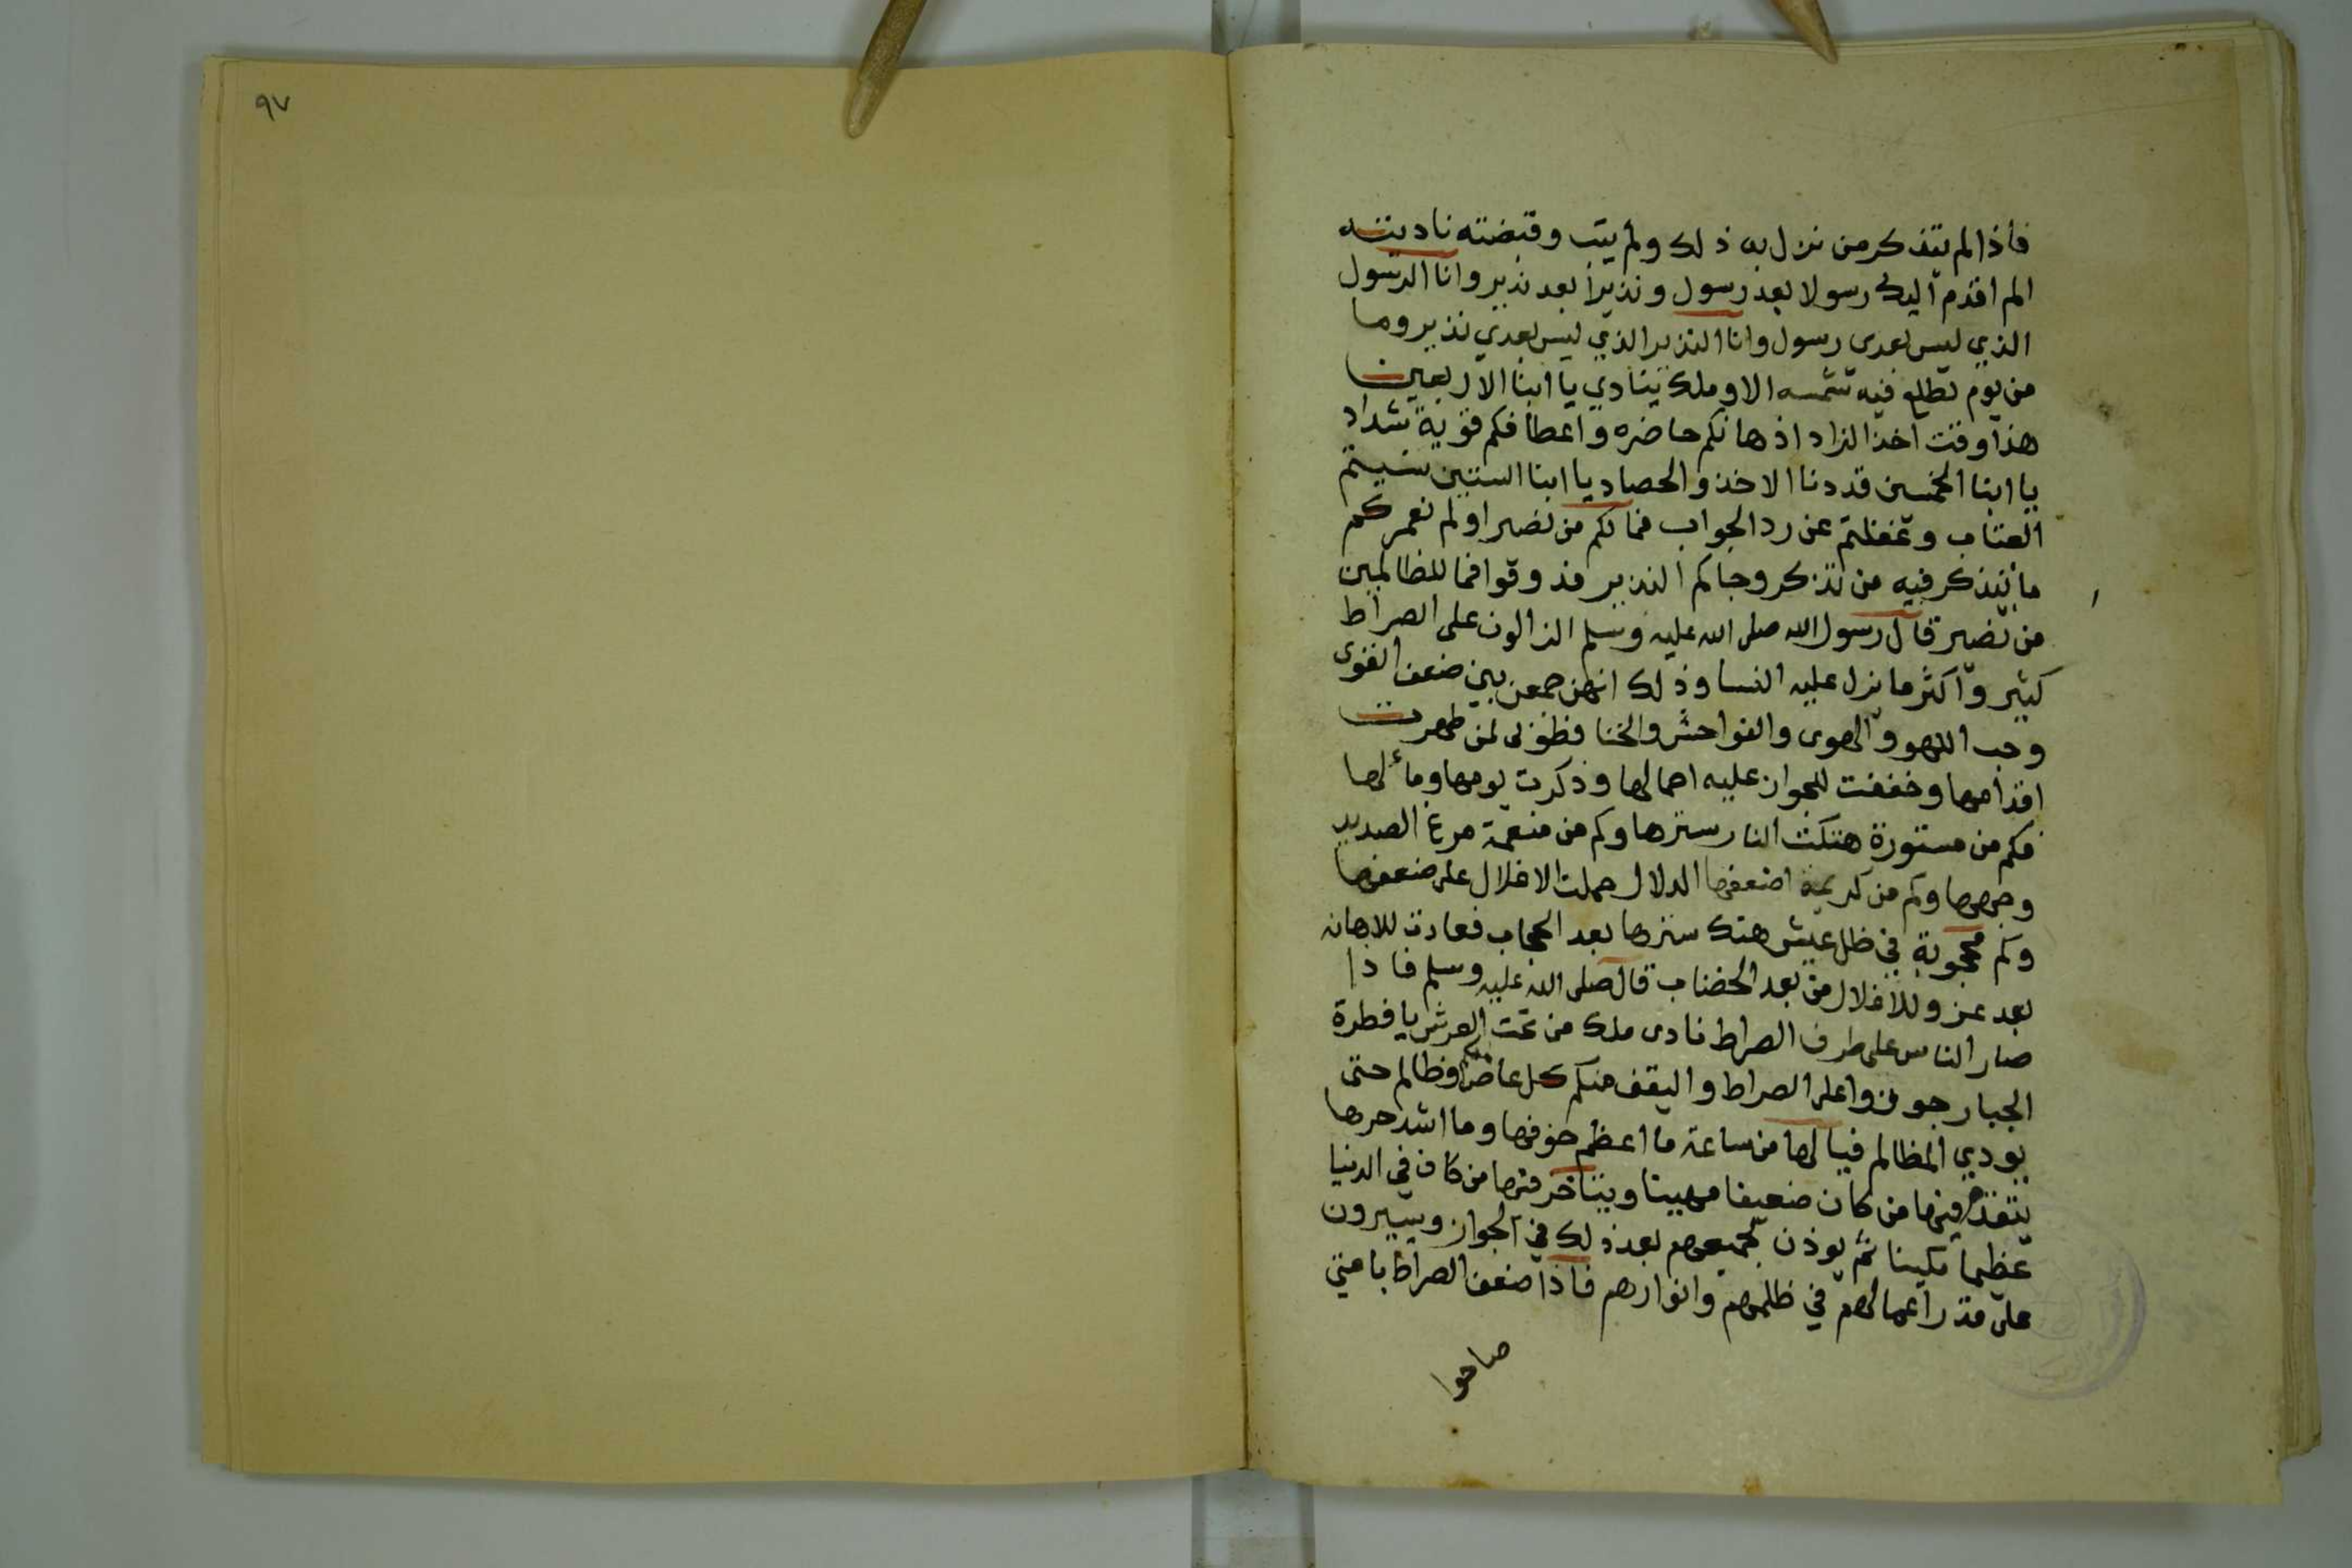 ٩٧
فاذا لم يتذكر من نزل به ذلك ولم يتب وقبضته ناديته
الم اقدم اليك رسولا بعد رسول ونذيرا بعد نذير وانا الرسول
الذي ليس بعدى رسول وانا النذير الذي ليس بعدي نذير وما
من يوم تطلع فيه شمسه الا وملك ينادي يا ابنا الاربعين
هذا وقت اخذ الزاد اذهانكم حاضره واعطافكم قوية شداد
يا ابنا الخمسين قد دنا الاخذ والحصاد يا ابنا الستين نسيتم
العتاب وغفلتم عن رد الجواب فما لكم من نصير اولم نعمركم
ما يتذكر فيه من تذكر وجاكم النذير فذوقوا فما للظالمين
من نصير قال رسول الله صلى الله عليه وسلم الزالون على الصراط
كثير واكثر ما يزل عليه النسا وذلك انهن جمعن بين ضعف القوى
وحب اللهو والهوى والفواحش والخنا فطوبى لمن طهرت
اقدامها وخففت للجواز عليه احمالها وذكرت يومها ومألها
فكم من مستورة هتكت النار سترها وكم من منعمة مرغ الصديد
وجهها وكم من كريمة اضعفها الدلال حملت الاغلال على ضعفها
وكم محجوبة في ظل عيش هتك سترها بعد الحجاب فعادت للاهانه
بعد عز وللاغلال من بعد الخضاب قال صلى الله عليه وسلم فاذا
صار الناس على طرف الصراط نادى ملك من تحت العرش يا فطرة
الجبار جوزوا على الصراط واليقف منكم كل عاص وظالم حتى
يودي المظالم فيا لها من ساعة ما اعظم خوفها وما اشد حرها
يتقدم فيها من كان ضعيفا مهينا ويتاخر فيها من كان في الدنيا
عظيما مكينا ثم يوذن لجميعهم بعد ذلك في الجواز ويسيرون
على قدر اعمالهم في ظلمهم وانوارهم فاذا ضعف الصراط بامتي
صاحوا